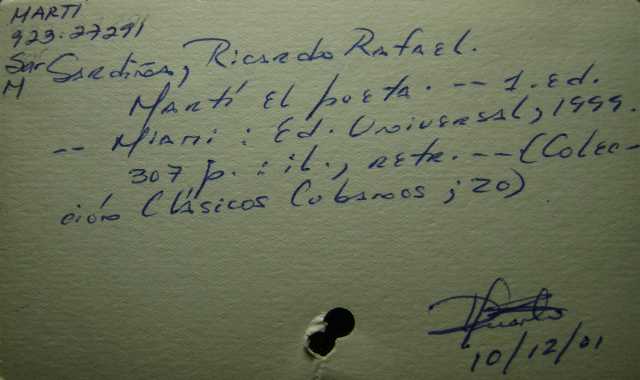 MARTÍ
923.27291
Sar Sardiñas, Ricardo Rafael.
M
Martí el poeta. -- 1. ed.
-- Miami : Ed. Universal, 1999.
307 p. : il., retr. -- (Colec-
ción Clásicos Cubanos ; 20)
10/12/01